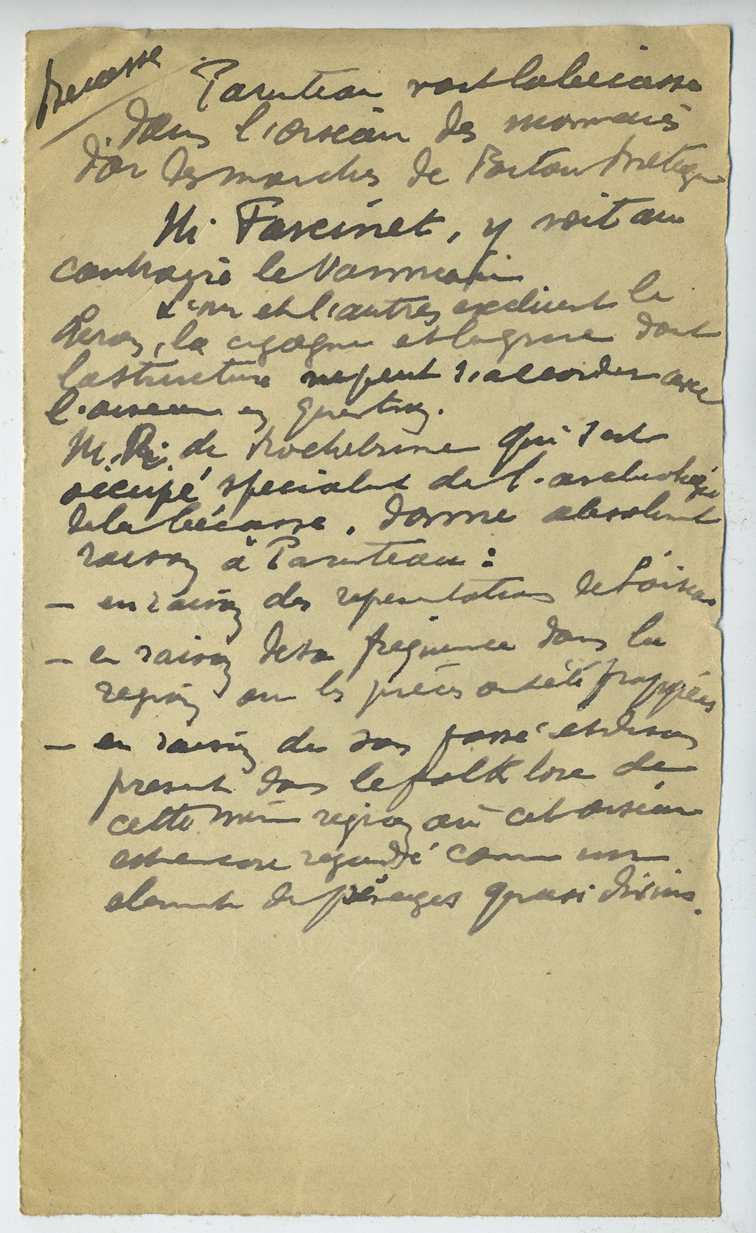 Becasse
Parenteau voit la bécasse
dans l'oiseau des monnaies
d'or des marches de Poitou Bretagne
M. Farcinet, y voit au
contraire le Vanneau
L'un et l'autres excluent le
Heron, la cigogne et la grue dont
la structure ne peut s'accorder avec
l'oiseau en question.
M. R. de Rochebrune qui s'est
occupé specialet de l'archeologie
de la bécasse, donne absolument
raison à Parenteau :
— en raison des representations de l'oiseau
— en raison de sa frequence dans la
region ou les pièces ont été frappées
— en raison de son passé et de son
present dans le folk lore de
cette même region où cet oiseau
est encore regardé comme un
element de présages quasi divins.